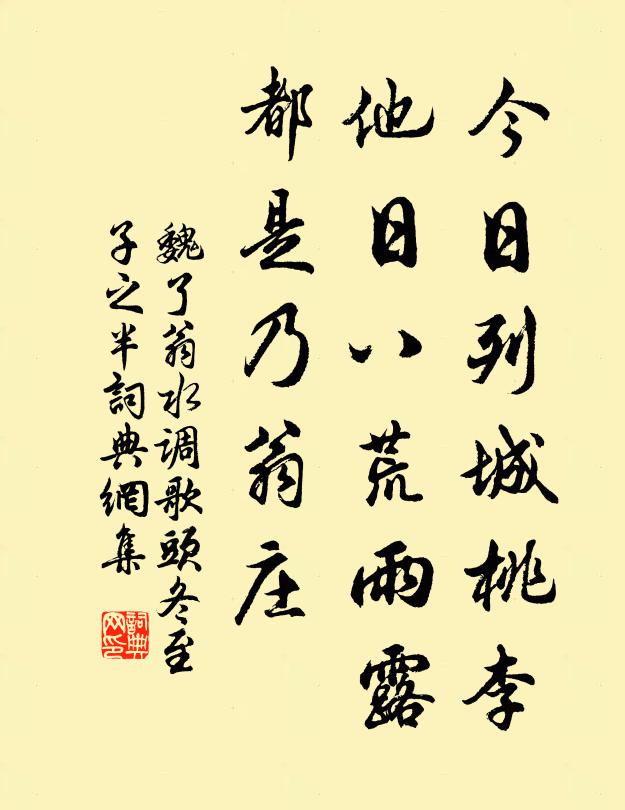 今日列城桃李
他日八荒雨露
都是乃翁庄
魏了翁水调歌頭冬至
子之半詞典網集
詞典網印